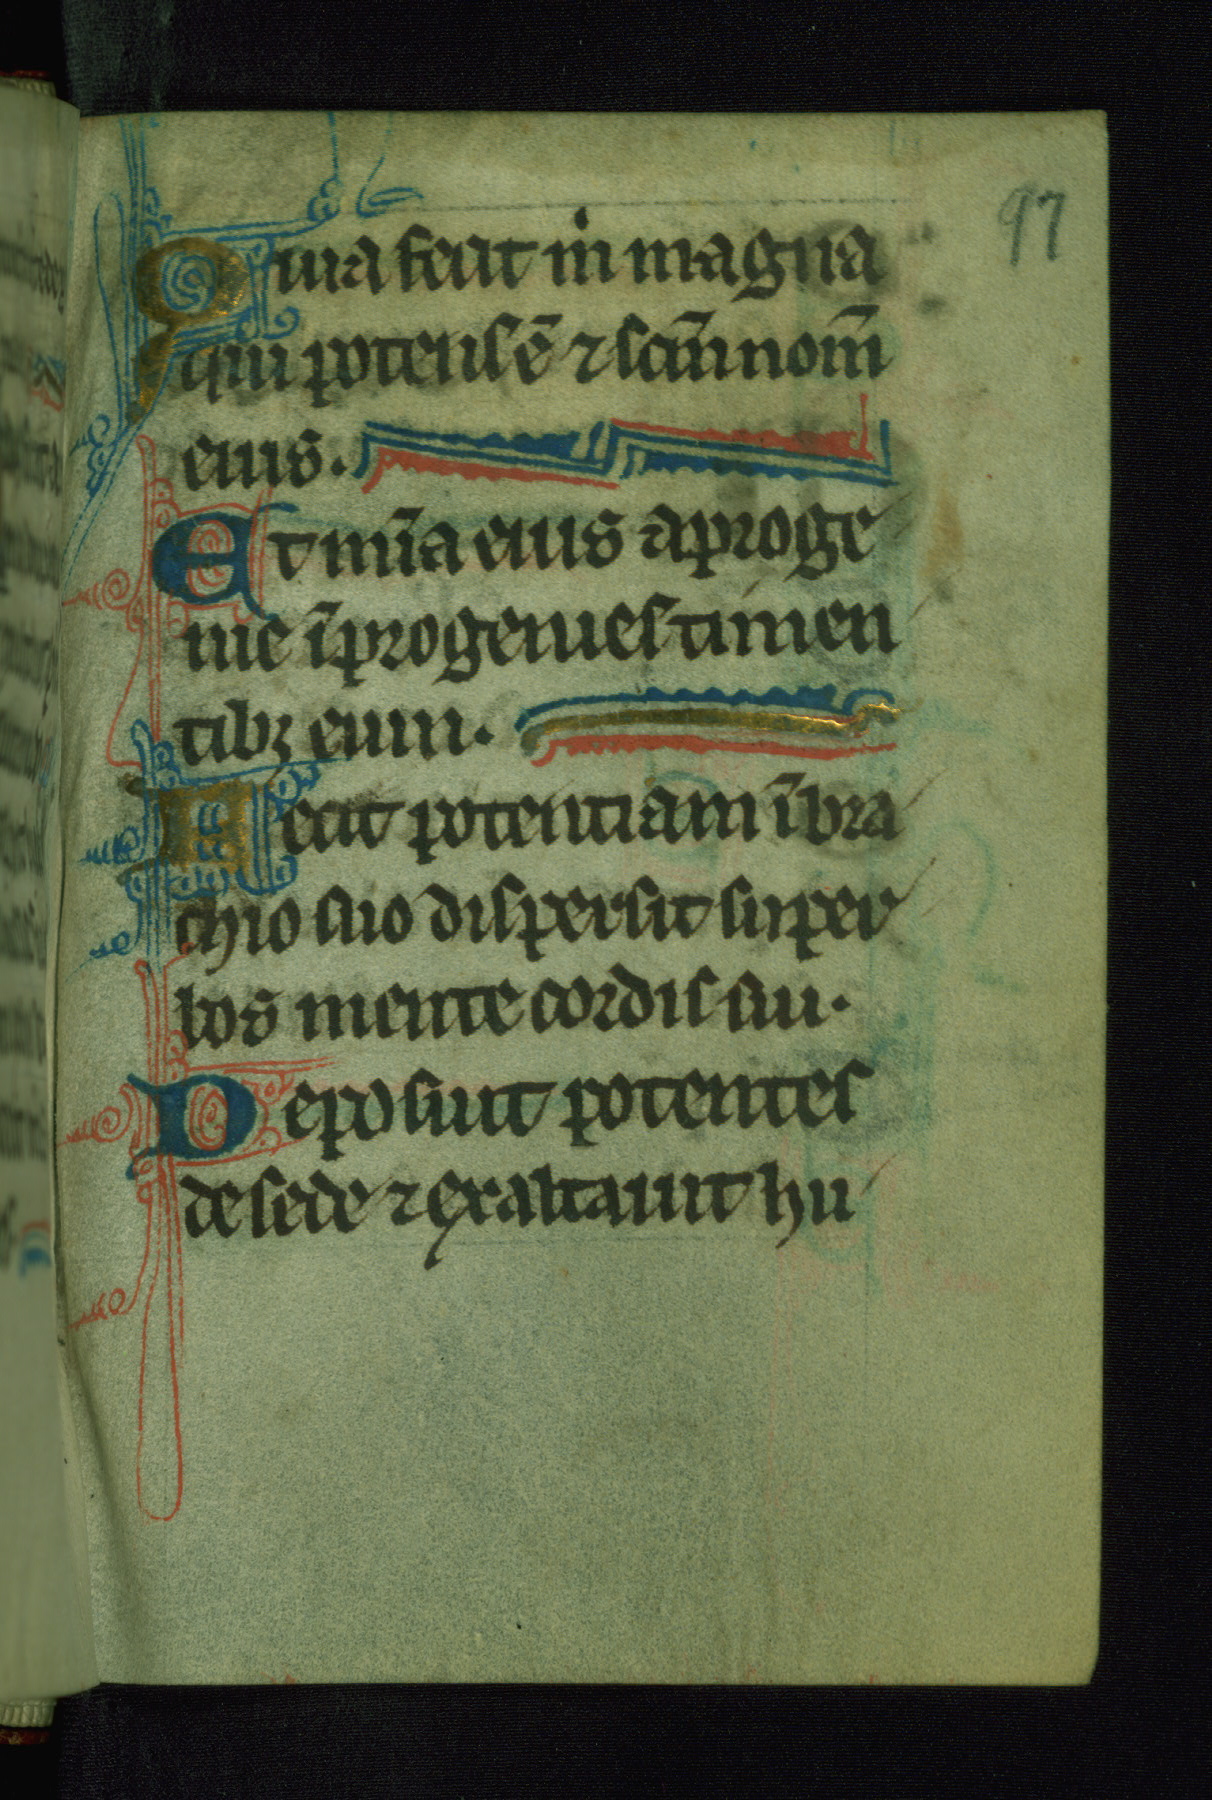 97
Quia fecit m̍ magna
qui potens ē ⁊ scm̄ nom̄
eius.
Et mīa eius a proge
nie ī progenies timen
tibꝫ eum.
Fecit potentiam ī bra
chio suo dispersit super
bos mente cordis sui.
Deposuit potentes
de sede ⁊ exaltauit hu